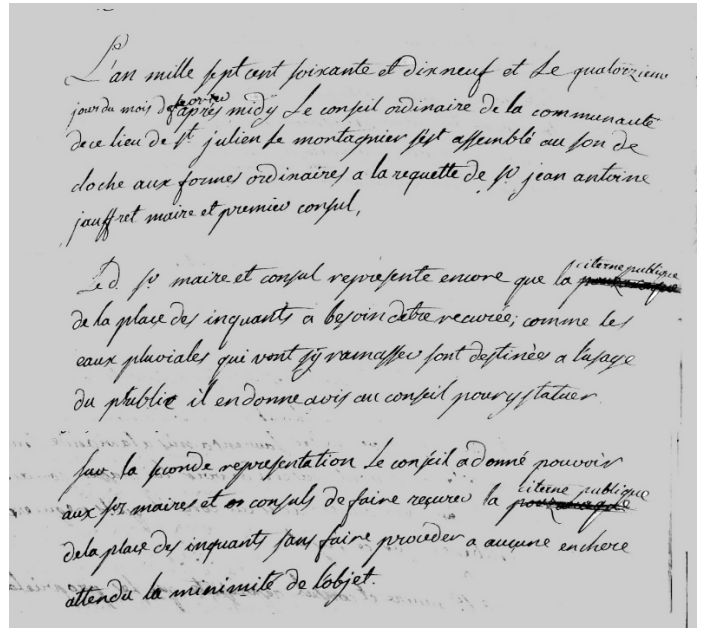 L'an mille sept cent soixante et dix neuf et Le quatorzieme
jour du mois de fevrier après midy Le conseil ordinaire de la communauté
de ce lieu de St julien Le montagnier s'est assemblé au son de
cloche aux formes ordinaires a la requette de sr jean antoine
jauffret maire et premier consul,
Led sr maire et consul represente encore que la citerne publique
de la place des inquants a besoin detre recurée; comme Les
eaux pluviales qui vont sy ramasser sont destinées a l'usage
du public il en donne avis au conseil pour y statuer
sur la seconde representation Le conseil a donné pouvoir
aux srs maires et consuls de faire recurer la citerne publique
de la place des inquants sans faire proceder a aucune enchere
attendu la minimité de l'objet.